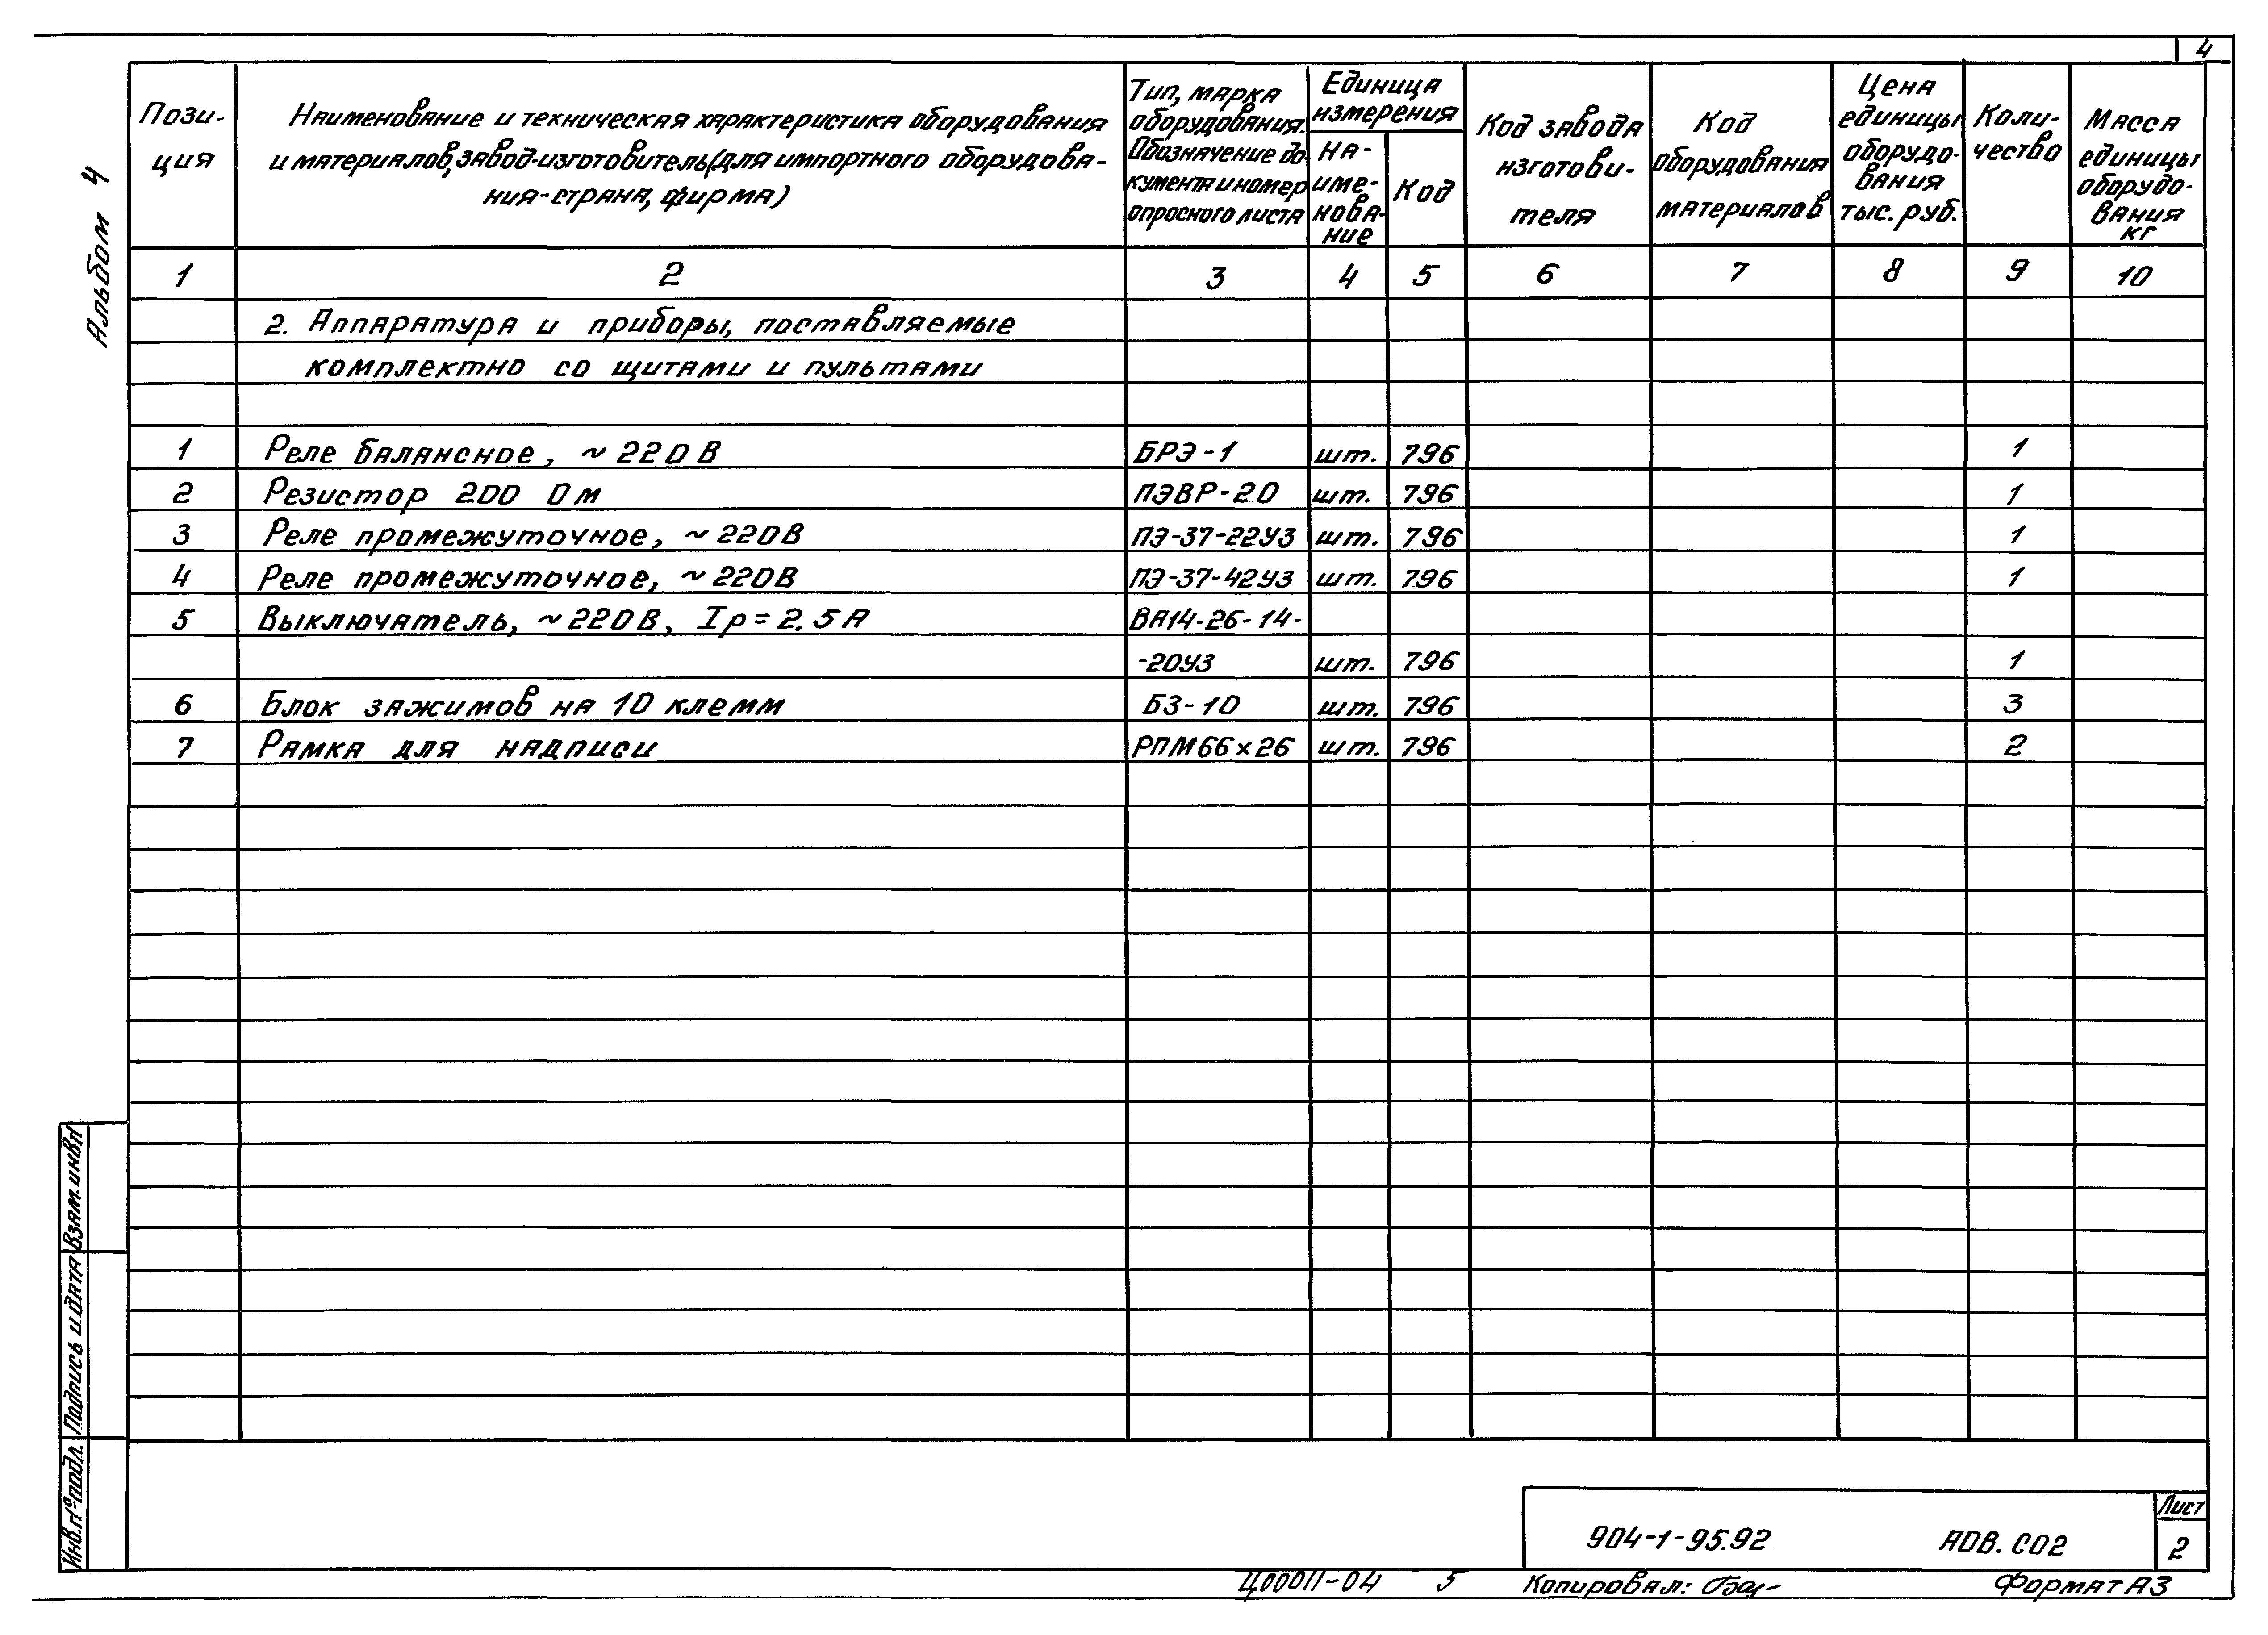 4
Альбом 4
Пози-
ция
Наименование и техническая характеристика оборудования
и материалов, завод-изготовитель (для импортного оборудова-
ния-страна, фирма)
Тип, марка
оборудования.
Обозначение до-
кумента и номер
опросного листа
Единица
измерения
На-
име-
нова-
ние
Код
Код завода
изготови-
теля
Код
оборудования
материалов
Цена
единицы
оборудо-
вания
тыс. руб.
Коли-
чество
Масса
единицы
оборудо-
вания
кг
1 2 3 4 5 6 7 8 9 10
2. Аппаратура и приборы, поставляемые
комплектно со щитами и пультами
1 Реле балансное, ~220В БРЭ-1 шт. 796 1
2 Резистор 200 Ом ПЭВР-20 шт. 796 1
3 Реле промежуточное, ~220В ПЭ-37-22У3 шт. 796 1
4 Реле промежуточное, ~220В ПЭ-37-42У3 шт. 796 1
5 Выключатель, ~220В, Iр=2.5А ВА14-26-14-
-20У3 шт. 796 1
6 Блок зажимов на 10 клемм БЗ-10 шт. 796 3
7 Рамка для надписи РПМ66х26 шт. 796 2
Взам. инв №
Подпись и дата
Инв. № подл.
904-1-95.92 АОВ.СО2
Лист
2
Ц00011-04 5 Копировал: Формат А3